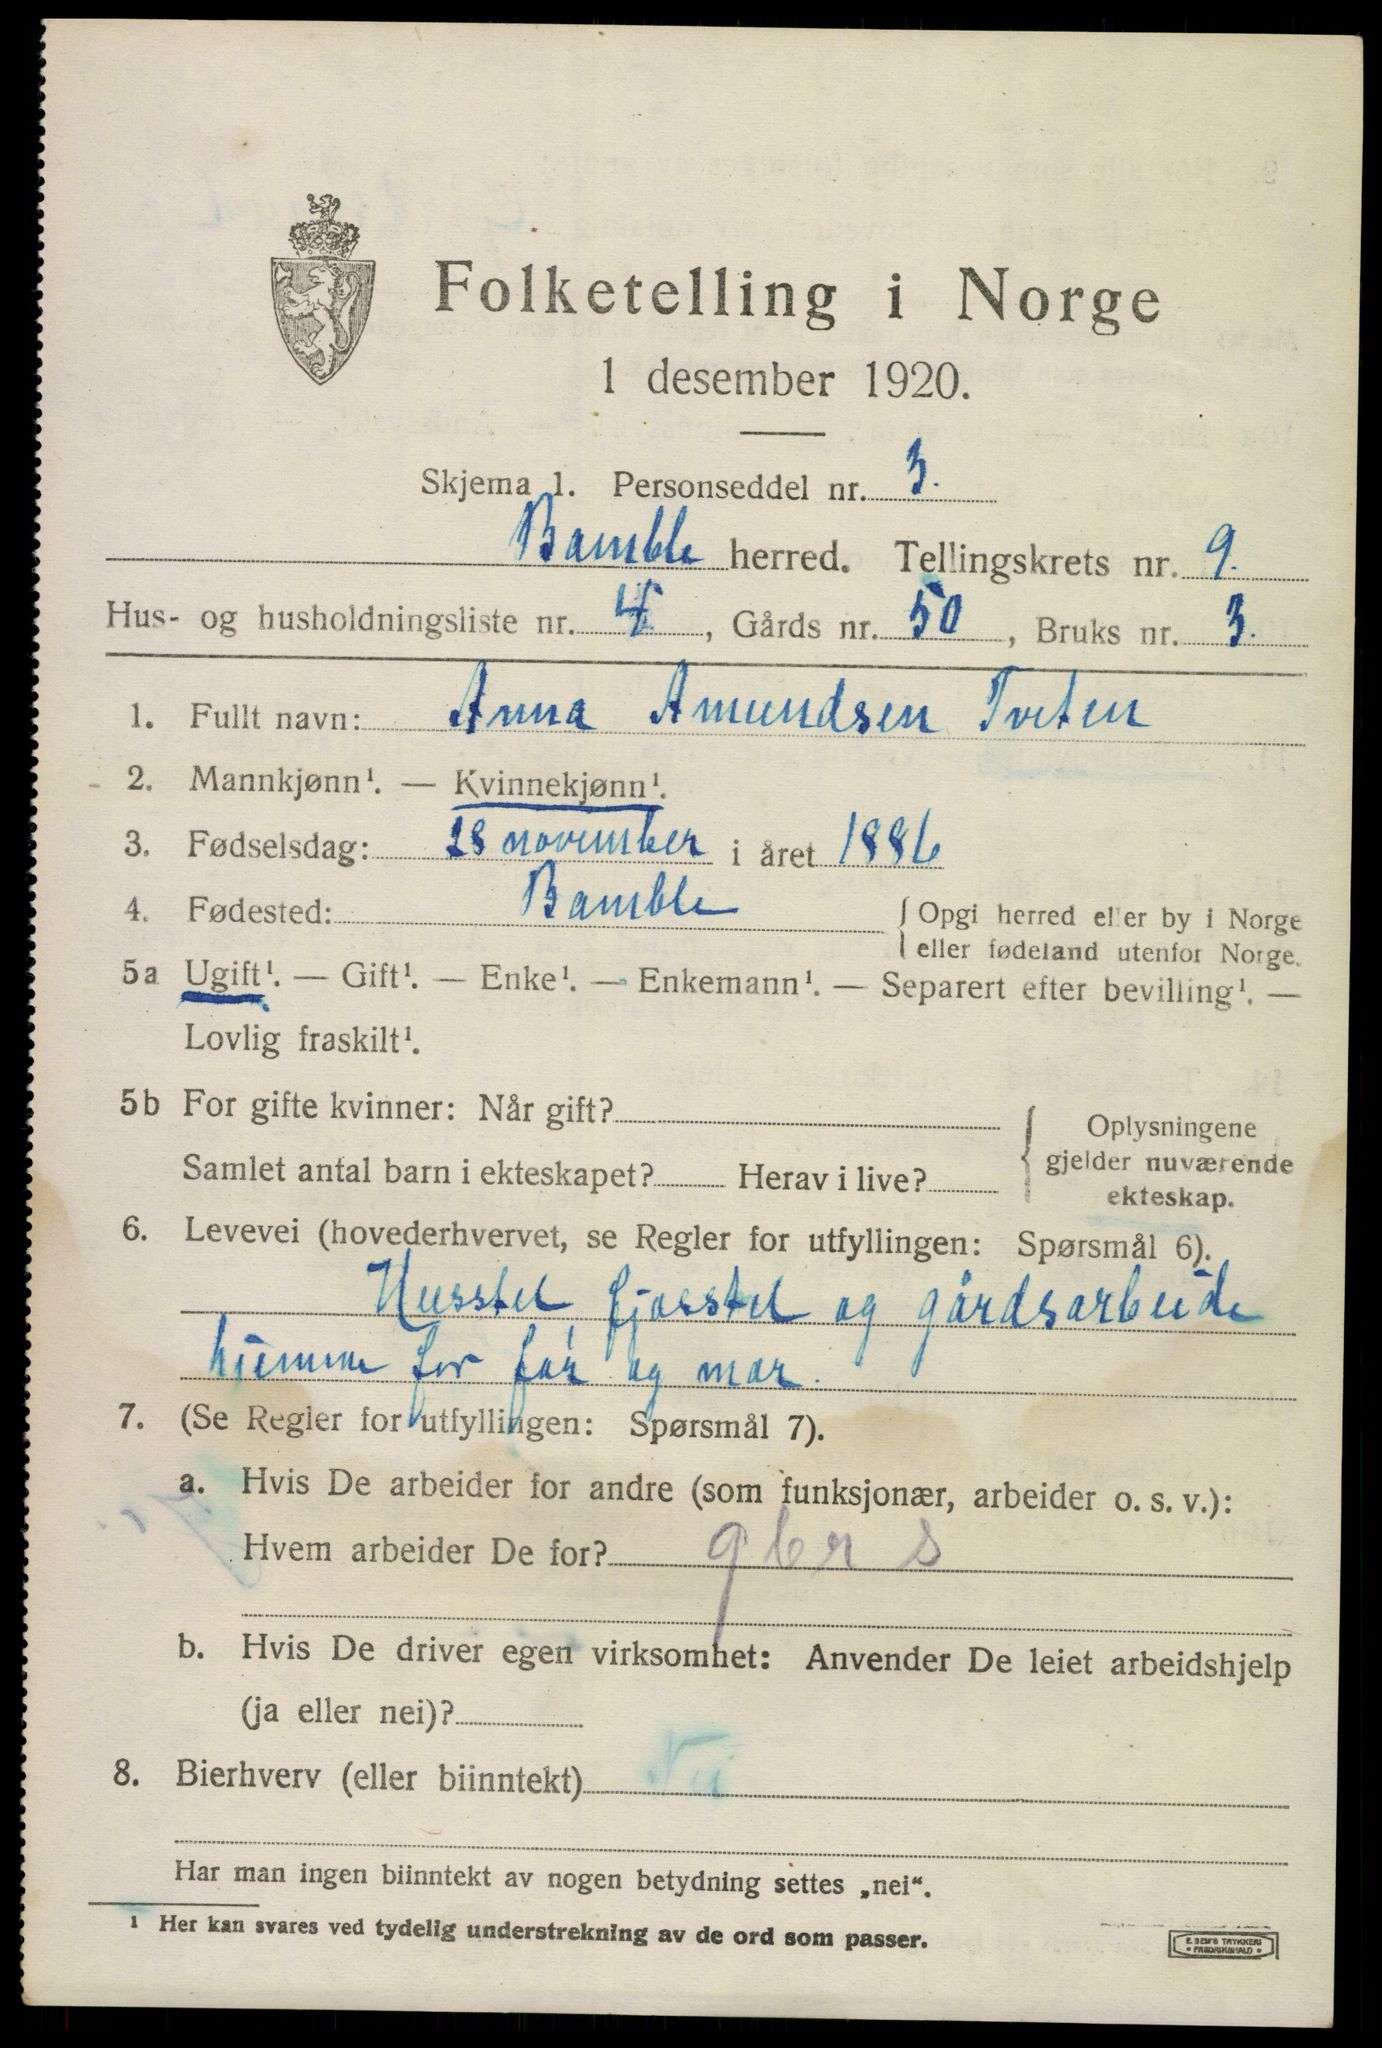 Folketelling i Norge
1 desember 1920.
Skjema 1. Personseddel nr. 3.
Bamble herred. Tellingskrets nr. 9.
Hus- og husholdningsliste nr. 4, Gårds nr. 50, Bruks nr. 3.
1. Fullt navn: Anna Amundsen Tveten
2. Mannkjønn¹. — Kvinnekjønn¹.
3. Fødselsdag: 28 november i året 1886
4. Fødested: Bamble { Opgi herred eller by i Norge
eller fødeland utenfor Norge.
5a Ugift¹. — Gift¹. — Enke¹. — Enkemann¹. — Separert efter bevilling¹. —
Lovlig fraskilt¹.
5b For gifte kvinner: Når gift? { Oplysningene
gjelder nuværende
ekteskap.
Samlet antal barn i ekteskapet? Herav i live?
6. Levevei (hovederhvervet, se Regler for utfyllingen: Spørsmål 6).
Husstel fjosstel og gårdsarbeide
hjemme for far og mor.
7. (Se Regler for utfyllingen: Spørsmål 7).
a. Hvis De arbeider for andre (som funksjonær, arbeider o. s. v.):
Hvem arbeider De for? gbr s
b. Hvis De driver egen virksomhet: Anvender De leiet arbeidshjelp
(ja eller nei)?
8. Bierhverv (eller biinntekt) Nei
Har man ingen biinntekt av nogen betydning settes „nei“.
¹ Her kan svares ved tydelig understrekning av de ord som passer.
E. SEM'S TRYKKERI
• FREDRIKSHALD •